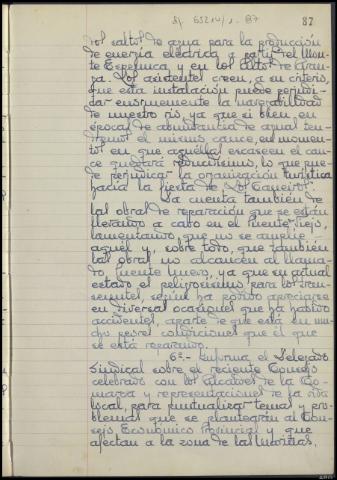 87
dos saltos de agua para la producción
de energía eléctrica a partir del Mon-
te Espenuca y en los altos de Aran-
ga. Los asistentes creen, a su criterio,
que esta instalación puede perjudi-
car enormemente la navegabilidad
de nuestro río, ya que si bien, en
épocas de abundancia de aguas ten-
dremos el mismo cauce, en momen-
tos en que aquellas escaseen el cau-
ce quedará reducidísimo, lo que pue-
de perjudicar la organización turística
hacia la fiesta de "Los Caneiros".
Da cuenta también de
las obras de reparación que se están
llevando a cabo en el Puente Viejo,
lamentando que no se amplíe
aquél y, sobre todo, que también
las obras no alcancen al llama-
do, Puente Nuevo, ya que su actual
estado es peligrosísimo para los tran-
seuntes, según ha podido apreciarse
en diversas ocasiones que ha habido
accidentes, aparte de que está en mu-
cho peores condiciones que el que
se está reparando.
6º.- Informa el Delegado
Sindical sobre el reciente Consejo
celebrado con los Alcaldes de la Co-
marca y representaciones de la vida
local, para puntualizar temas y pro-
blemas que se plantearán al Con-
sejo Económico Provincial y que
afectan a la zona de las Mariñas.